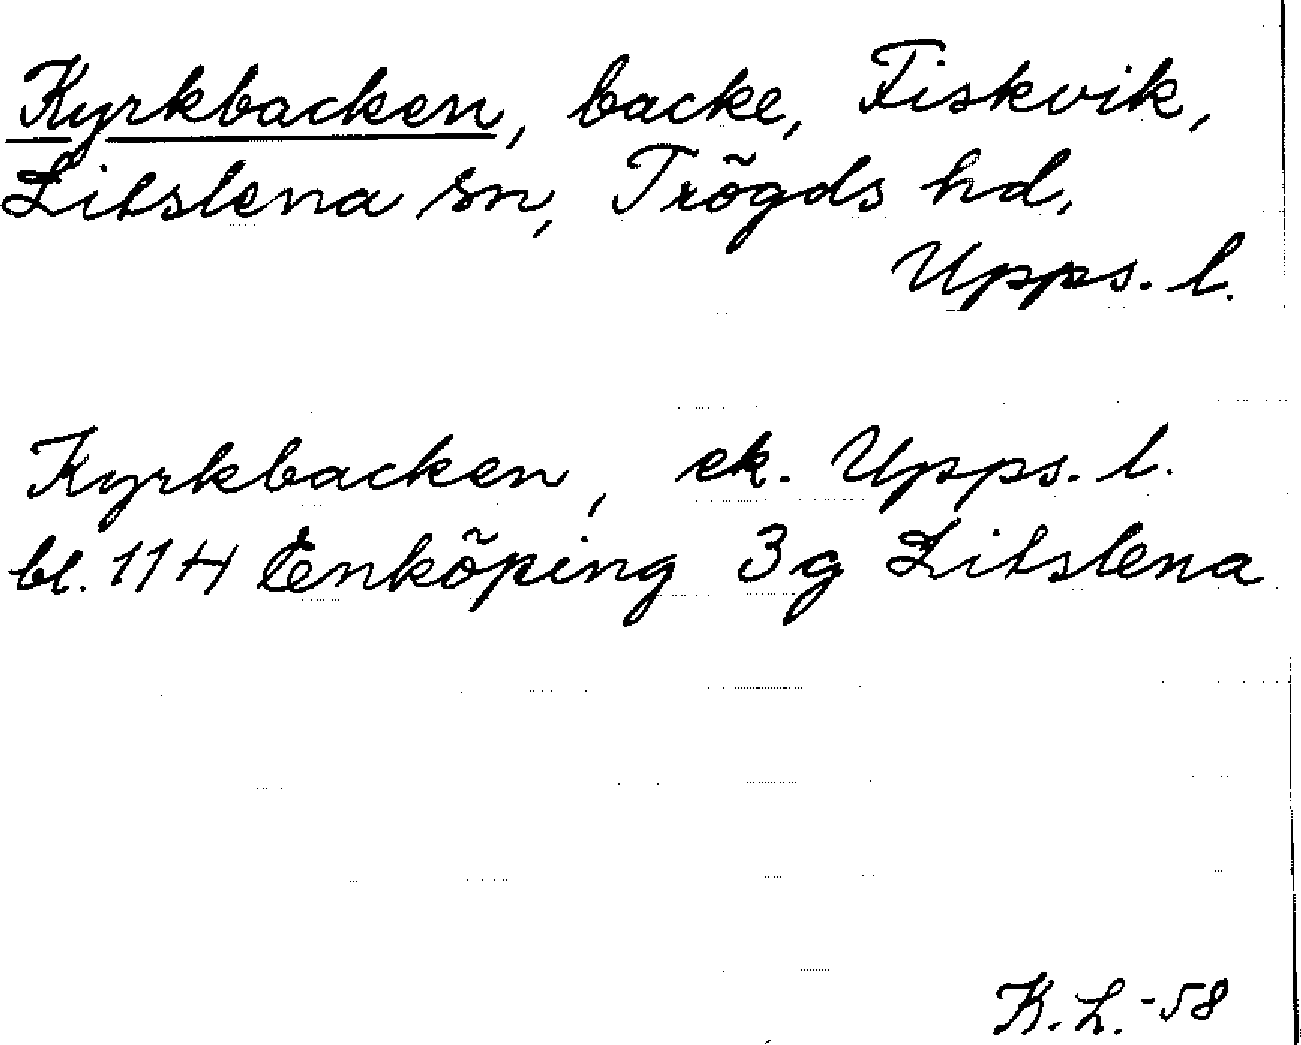 Kyrkbacken, backe, Fiskvik,
Litslena sn, Trögds hd,
Upps. l.
Kyrkbacken, ek. Upps. l.
bl. 114 Enköping 3g Litslena
K. L. -58